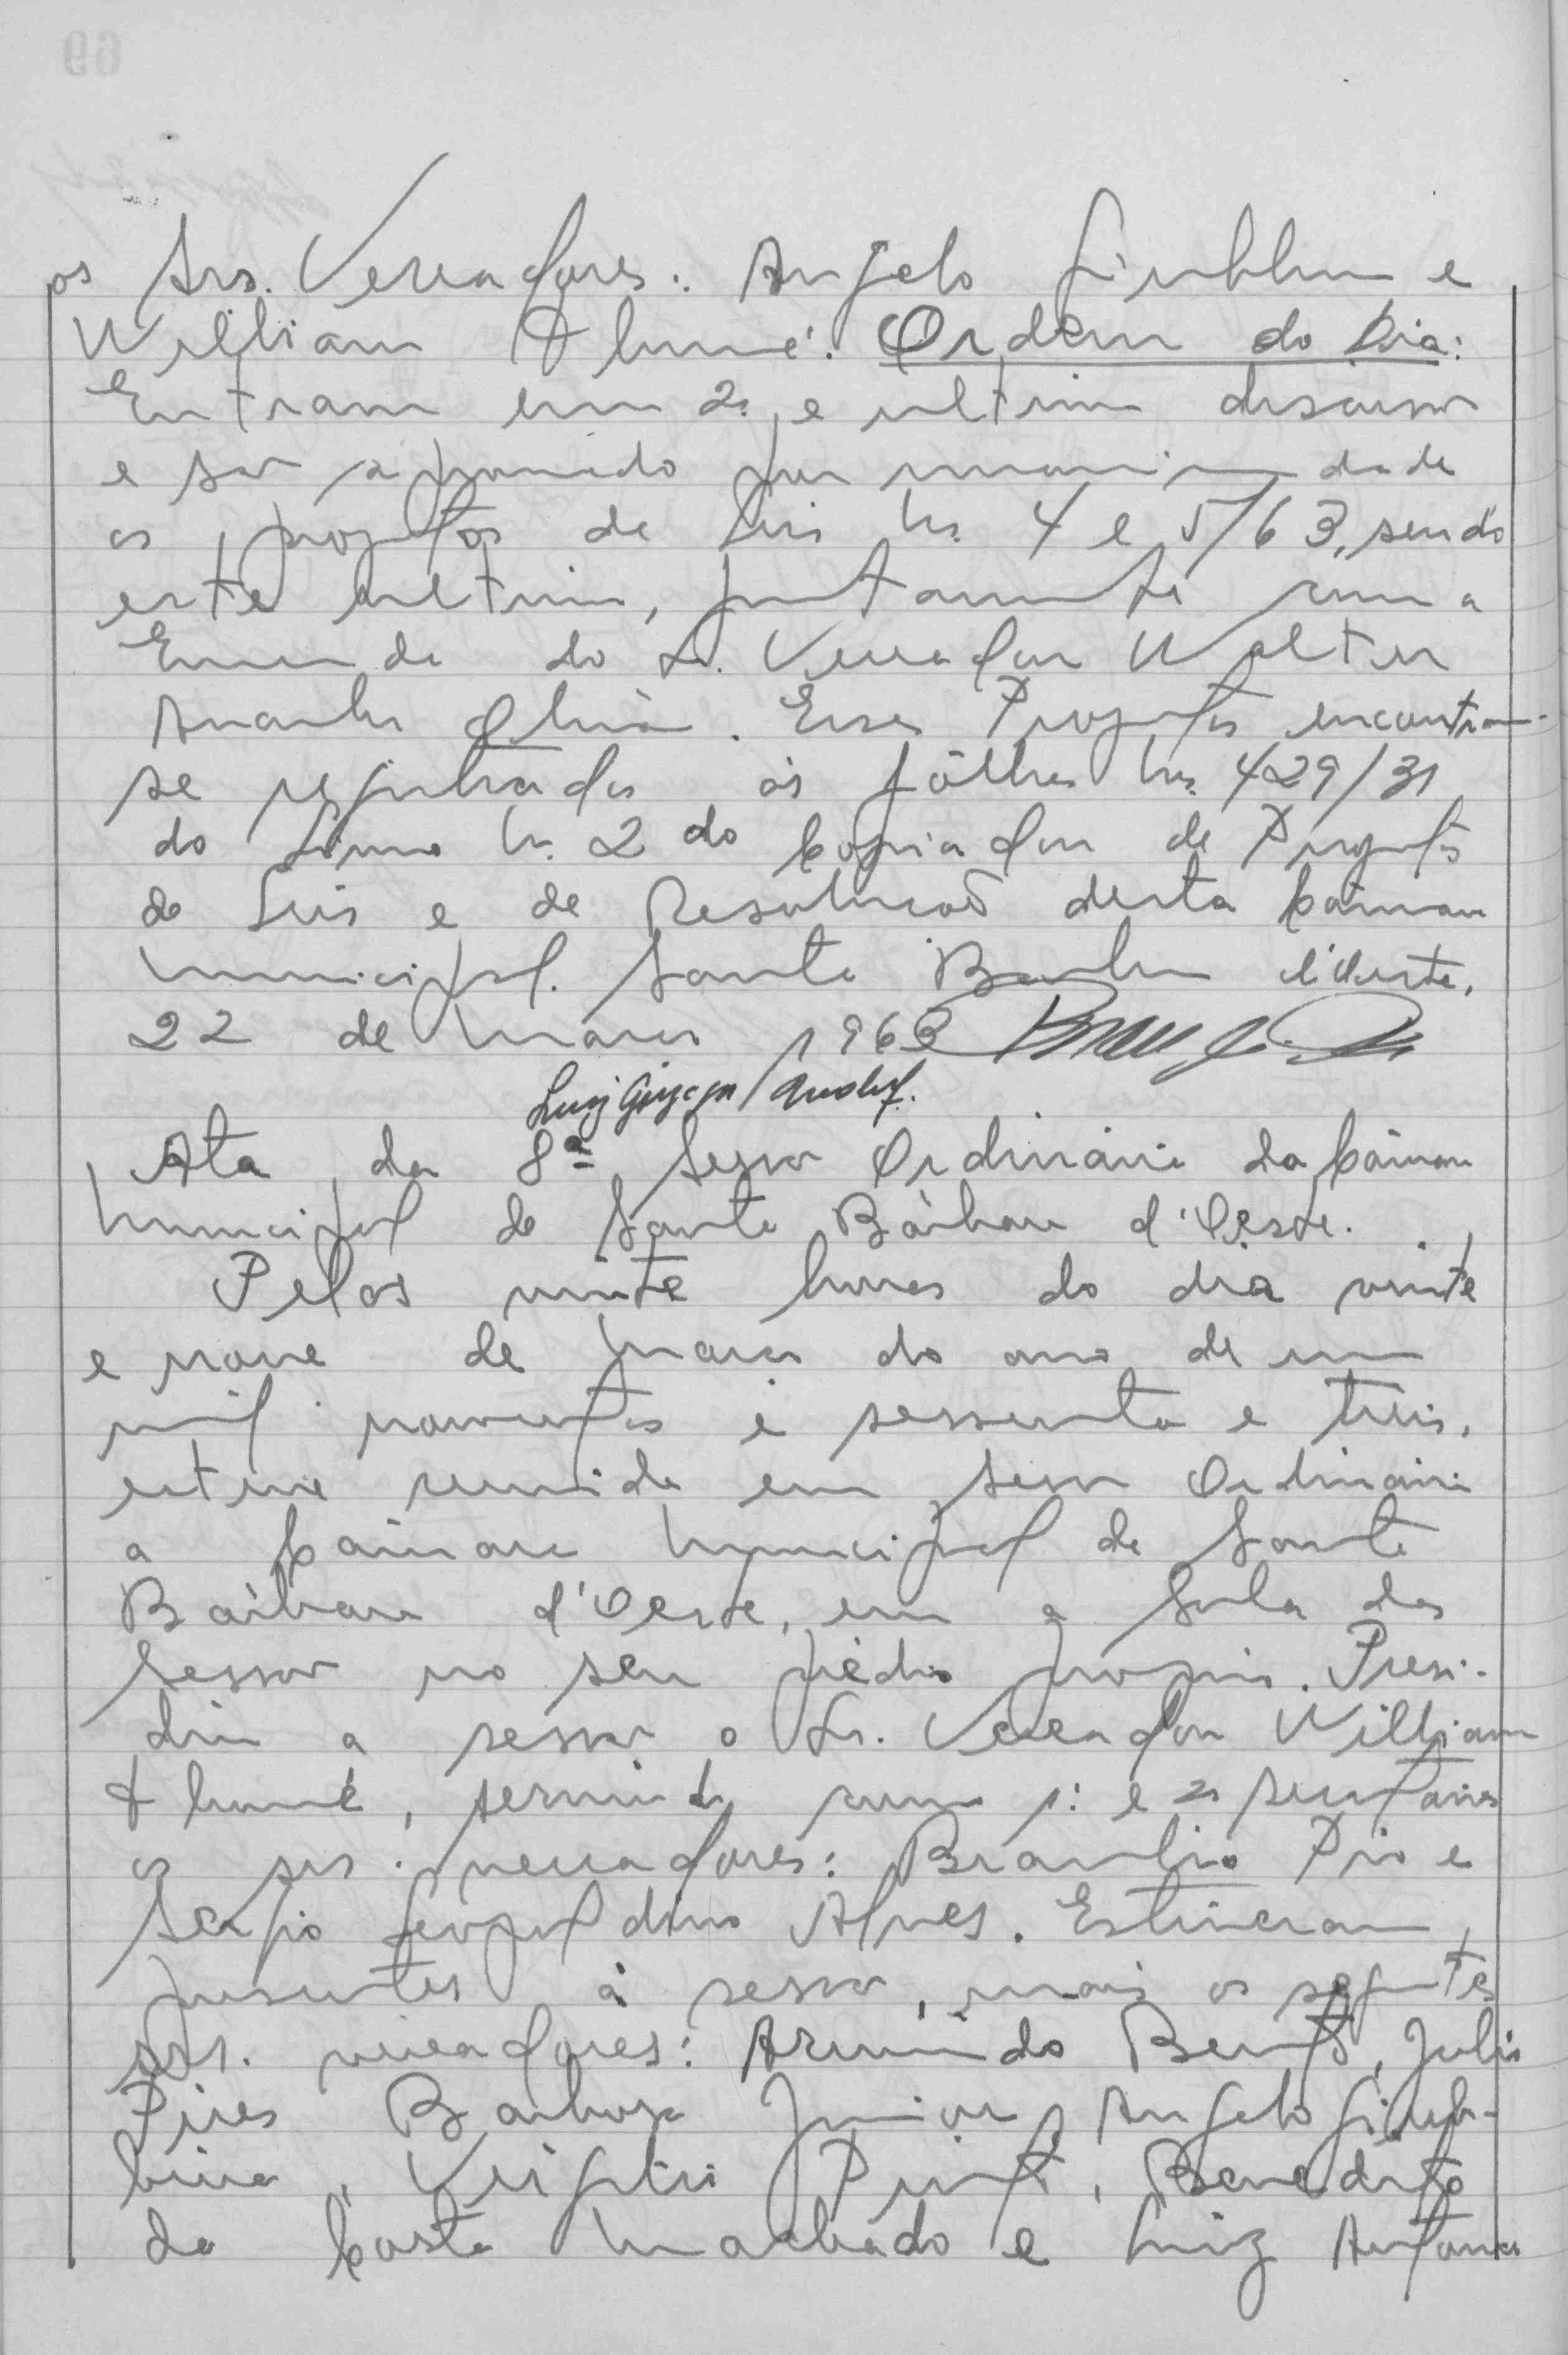 os Srs. Vereadores: Angelo Giubbina e
William Thomé. Ordem do Dia:
Entram em 2ª e ultima discussão
e são aprovado por unanimidade
os projetos de Leis ns. 4 e 5/63, sendo
este ultimo, juntamente com a
Emenda do Sr. Vereador Walter
Oliva. Esses Projetos encontram-
se registrados ás fôlhas ns. 429/31
do Livro n. 2 do Copiador de Projetos
de Leis e de Resolucoes desta Câmara
Municipal. Santa Barbara d'Oeste,
22 de Marco 1963
Luiz
Ata da 8ª Sessão Ordinária da Câmara
Municipal de Santa Bárbara d'Oeste.
Pelas vinte horas do dia vinte
e nove de Marco do ano de um
mil novecentos e sessenta e treis,
esteve reunida em sessão Ordinária
a Câmara Municipal de Santa
Bárbara d'Oeste, em a Sala das
Sessões no seu prédio proprio. Presi-
diu a sessão o Sr. Vereador William
Thomé, servindo como 1º e 2º secretarios
os srs. vereadores: Braulio Pio e
Sergio Leopoldino Alves. Estiveram
presentes á sessão, mais os seguintes
srs. vereadores: Armindo Bento, Julio
Pires Barbosa Junior, Angelo Giub-
bina, Virgilio , Benedito
da Costa Machado e Luiz Antonio